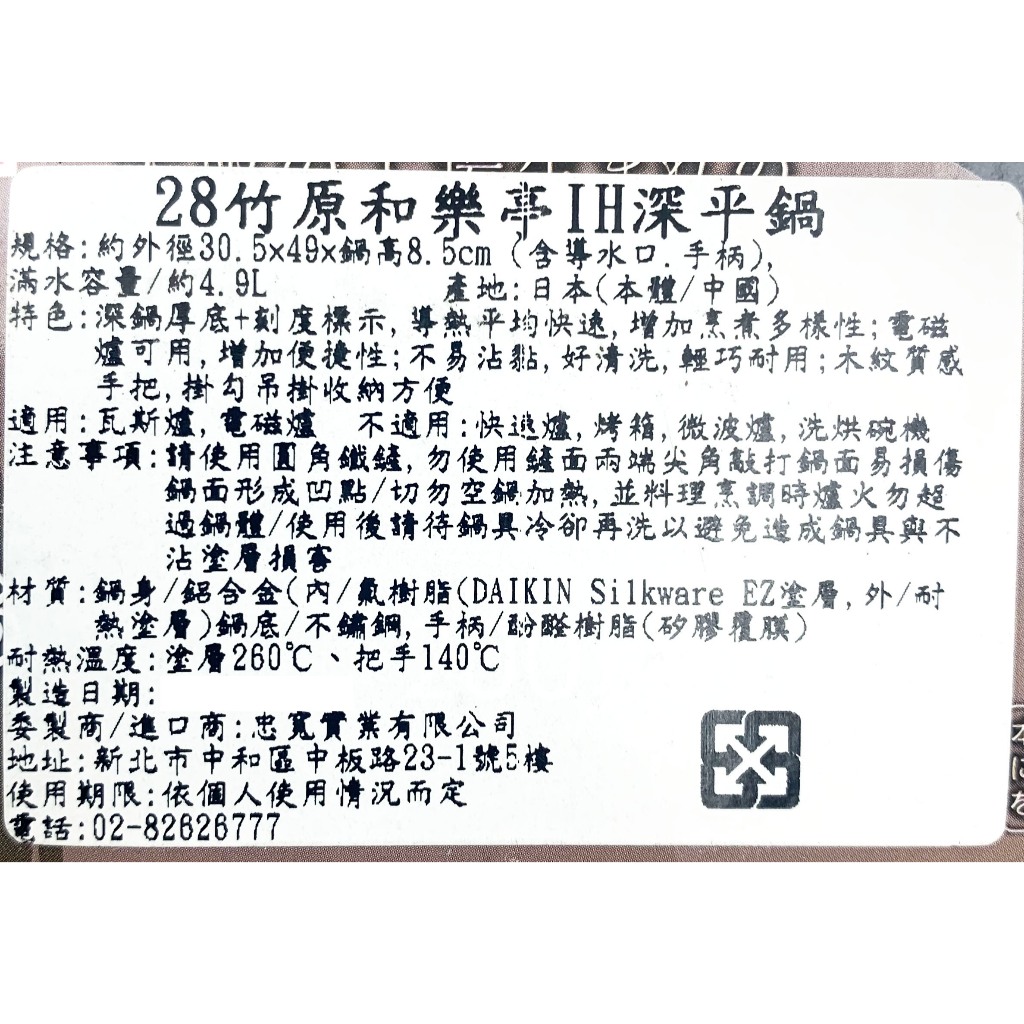 28竹原和樂亭IH深平鍋
規格:約外徑30.5x49x鍋高8.5cm (含導水口.手柄),
滿水容量/約4.9L 產地:日本(本體/中國)
特色:深鍋厚底+刻度標示,導熱平均快速,增加烹煮多樣性;電磁
爐可用,增加便捷性;不易沾黏,好清洗,輕巧耐用;木紋質感
手把,掛勾吊掛收納方便
適用:瓦斯爐,電磁爐 不適用:快速爐,烤箱,微波爐,洗烘碗機
注意事項:請使用圓角鐵鏟,勿使用鏟面兩端尖角敲打鍋面易損傷
鍋面形成凹點/切勿空鍋加熱,並料理烹調時爐火勿超
過鍋體/使用後請待鍋具冷卻再洗以避免造成鍋具與不
沾塗層損害
材質:鍋身/鋁合金(內/氟樹脂(DAIKIN Silkware EZ塗層,外/耐
熱塗層)鍋底/不鏽鋼,手柄/酚醛樹脂(矽膠覆膜)
耐熱溫度:塗層260℃、把手140℃
製造日期:
委製商/進口商:忠寬實業有限公司
地址:新北市中和區中板路23-1號5樓
使用期限:依個人使用情況而定
電話:02-82626777